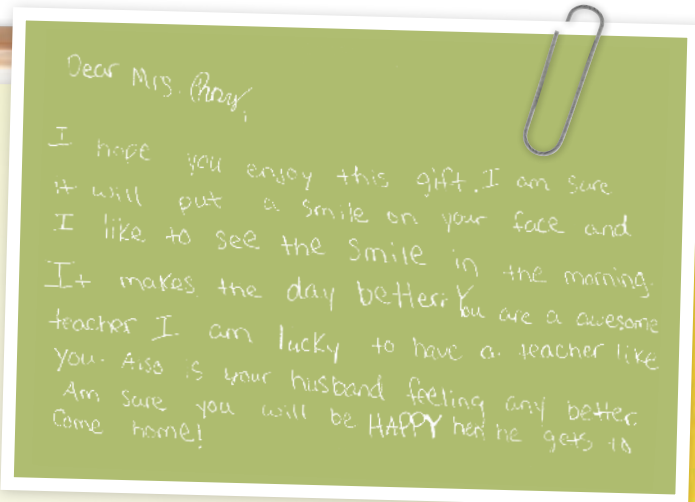 Dear Mrs.
I hope you enjoy this gift. I am sure
it will put a smile on your face and
I like to see the smile in the morning.
It makes the day better. You are a awesome
teacher I am lucky to have a teacher like
you. Also is your husband feeling any better.
Am sure you will be HAPPY hen he gets to
Come home!